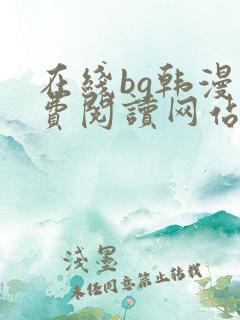 在綫bg韩漫
費閱讀网佔
淺墨
未经同意禁止转载